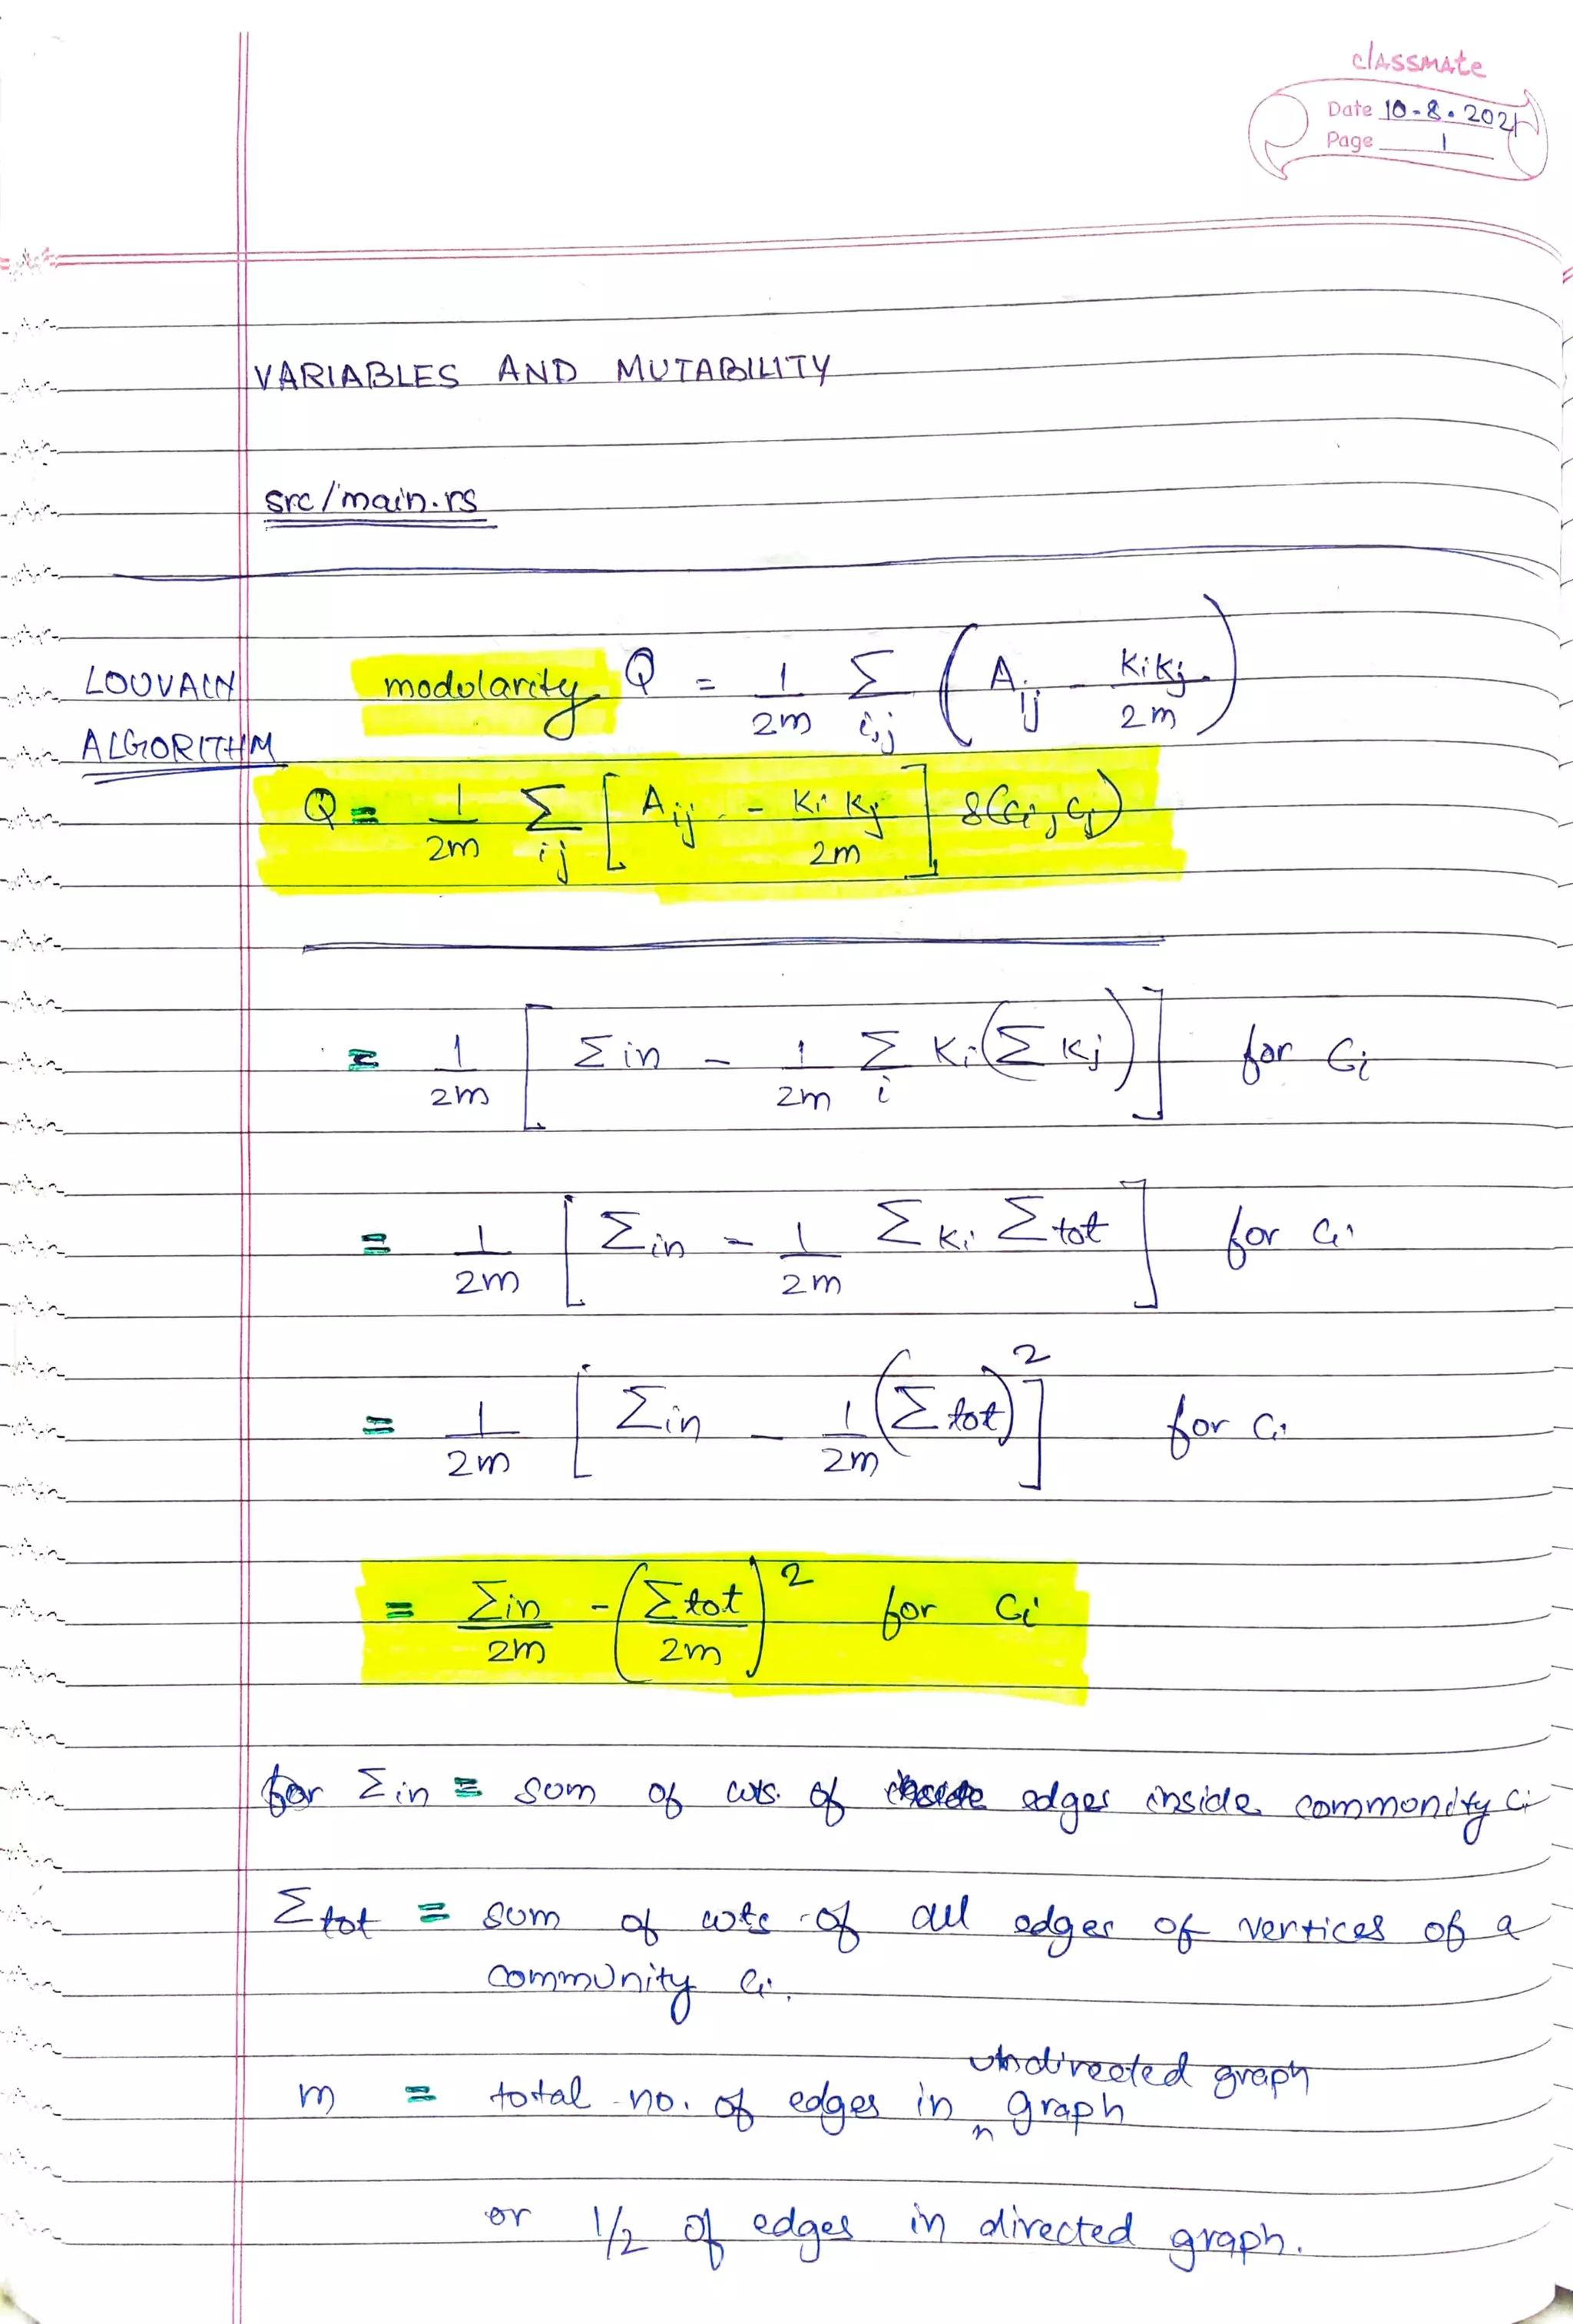 classmate
Date 10-8-2021
Page 1
VARIABLES AND MUTABILITY
src/main.rs
LOUVAIN
ALGORITHM
modularity Q = 1/2m Σ i,j ( A ij - KiKj / 2m )
Q = 1/2m Σ ij [ A ij - Ki Kj / 2m ] δ(Ci, Cj)
= 1/2m [ Σ in - 1/2m Σ i Ki (Σ Kj) ] for Ci
= 1/2m [ Σ in - 1/2m Σ Ki Σ tot ] for Ci
= 1/2m [ Σ in - 1/2m (Σ tot)² ] for Ci
= Σ in / 2m - ( Σ tot / 2m )² for Ci
for Σ in = sum of wts. of edges inside community Ci
Σ tot = sum of wts of all edges of vertices of a
community Ci.
undirected graph
m = total no. of edges in graph
or 1/2 of edges in directed graph.